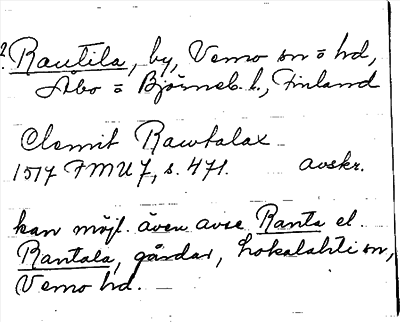 2. Rautila, by, Vemo sn o hd,
Åbo o Björneb. l., Finland
Clemit Rawtalax
1517 FMU 7, s. 471. avskr.
kan möjl. även avse Ranta el.
Rantala, gårdar, Lokalahti sn,
Vemo hd.